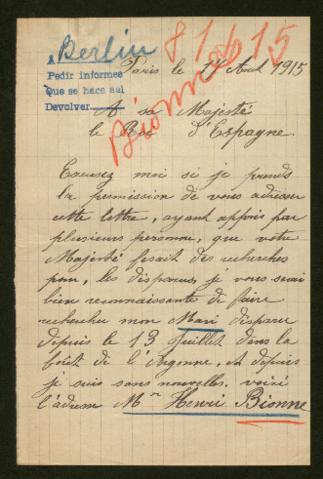 Berlin
81415
Pedir informes
Que se hace aquí
Devolver
Bionne
Paris le 14 Août 1915
A sa Majesté
le Roi d'Espagne.
Excusez moi si je prends
la permission de vous adresser
cette lettre, ayant appris par
plusieurs personne, que votre
Majesté fesait des recherches
pour, les disparus, je vous serai
bien reconnaissante de faire
rechercher mon Mari disparu
depuis le 13 Juillet dans la
boût de l'Argonne, et depuis
je suis sans nouvelles. voici
l'adresse Mr Henri Bionne